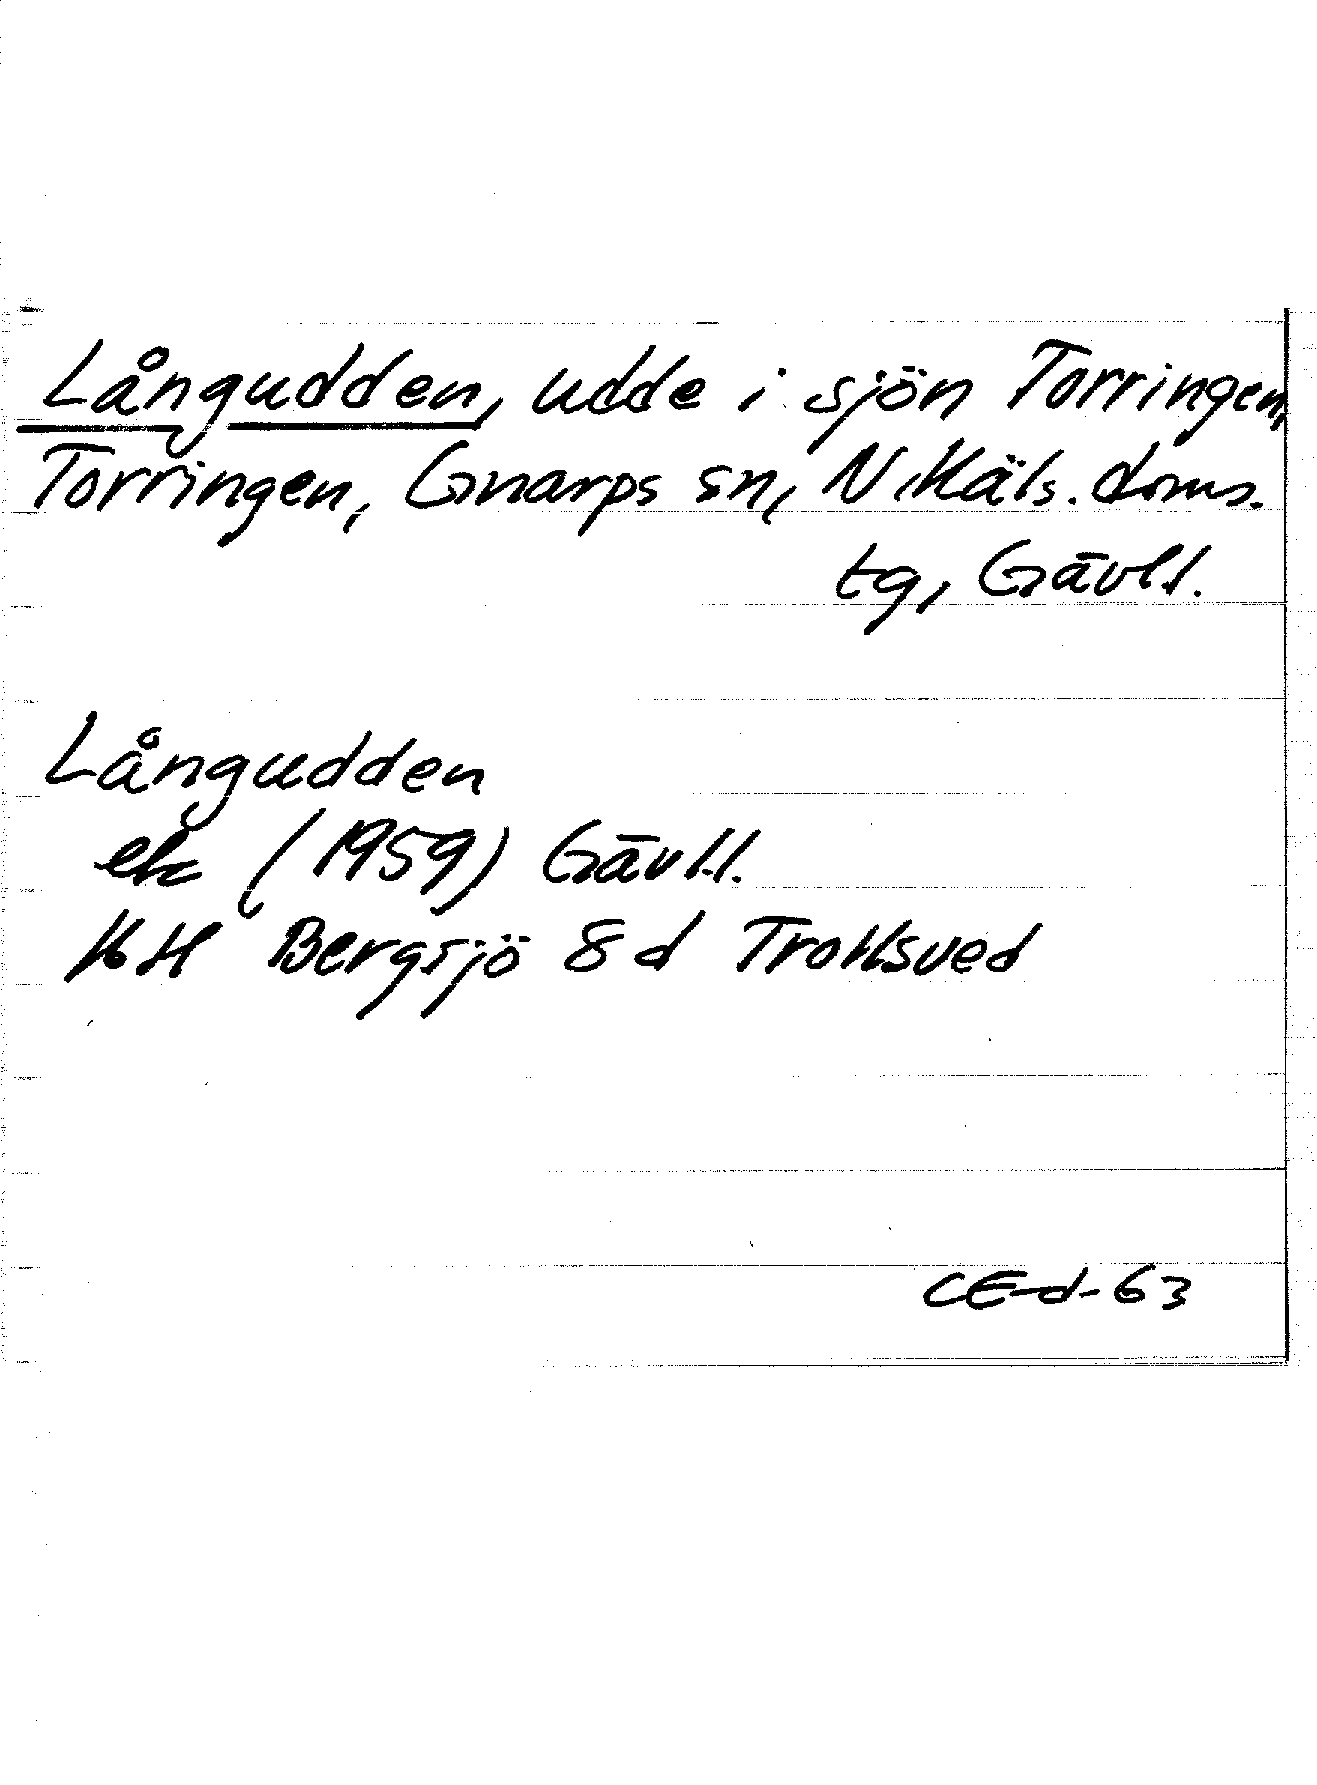 Långudden, udde i sjön Torringen,
Torringen, Gnarps sn, N. Häls. doms.
tg, Gävll.
Långudden
ek (1959) Gävll.
16H Bergsjö 8d Trollsved
CE-d-63